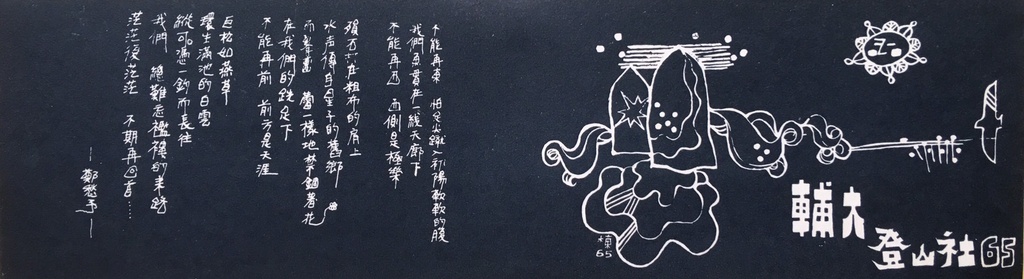 不能再東 怕足尖蹴入初陽軟軟的腹
我們魚貫在一線天廊下
不能再西 西側是極樂
隕石打在粗布的肩上
水声傳自星子的舊鄉
而峯巒 蕾一樣地禁錮著花
在我們的跣足下
不能再前 前方是天涯
巨松如燕草
環生滿池的白雲
縱可憑一釣而長住
我們 總難忘襤褸的來路
茫茫復茫茫 不期再回首……
—鄭愁予—
65
輔大
登山社65